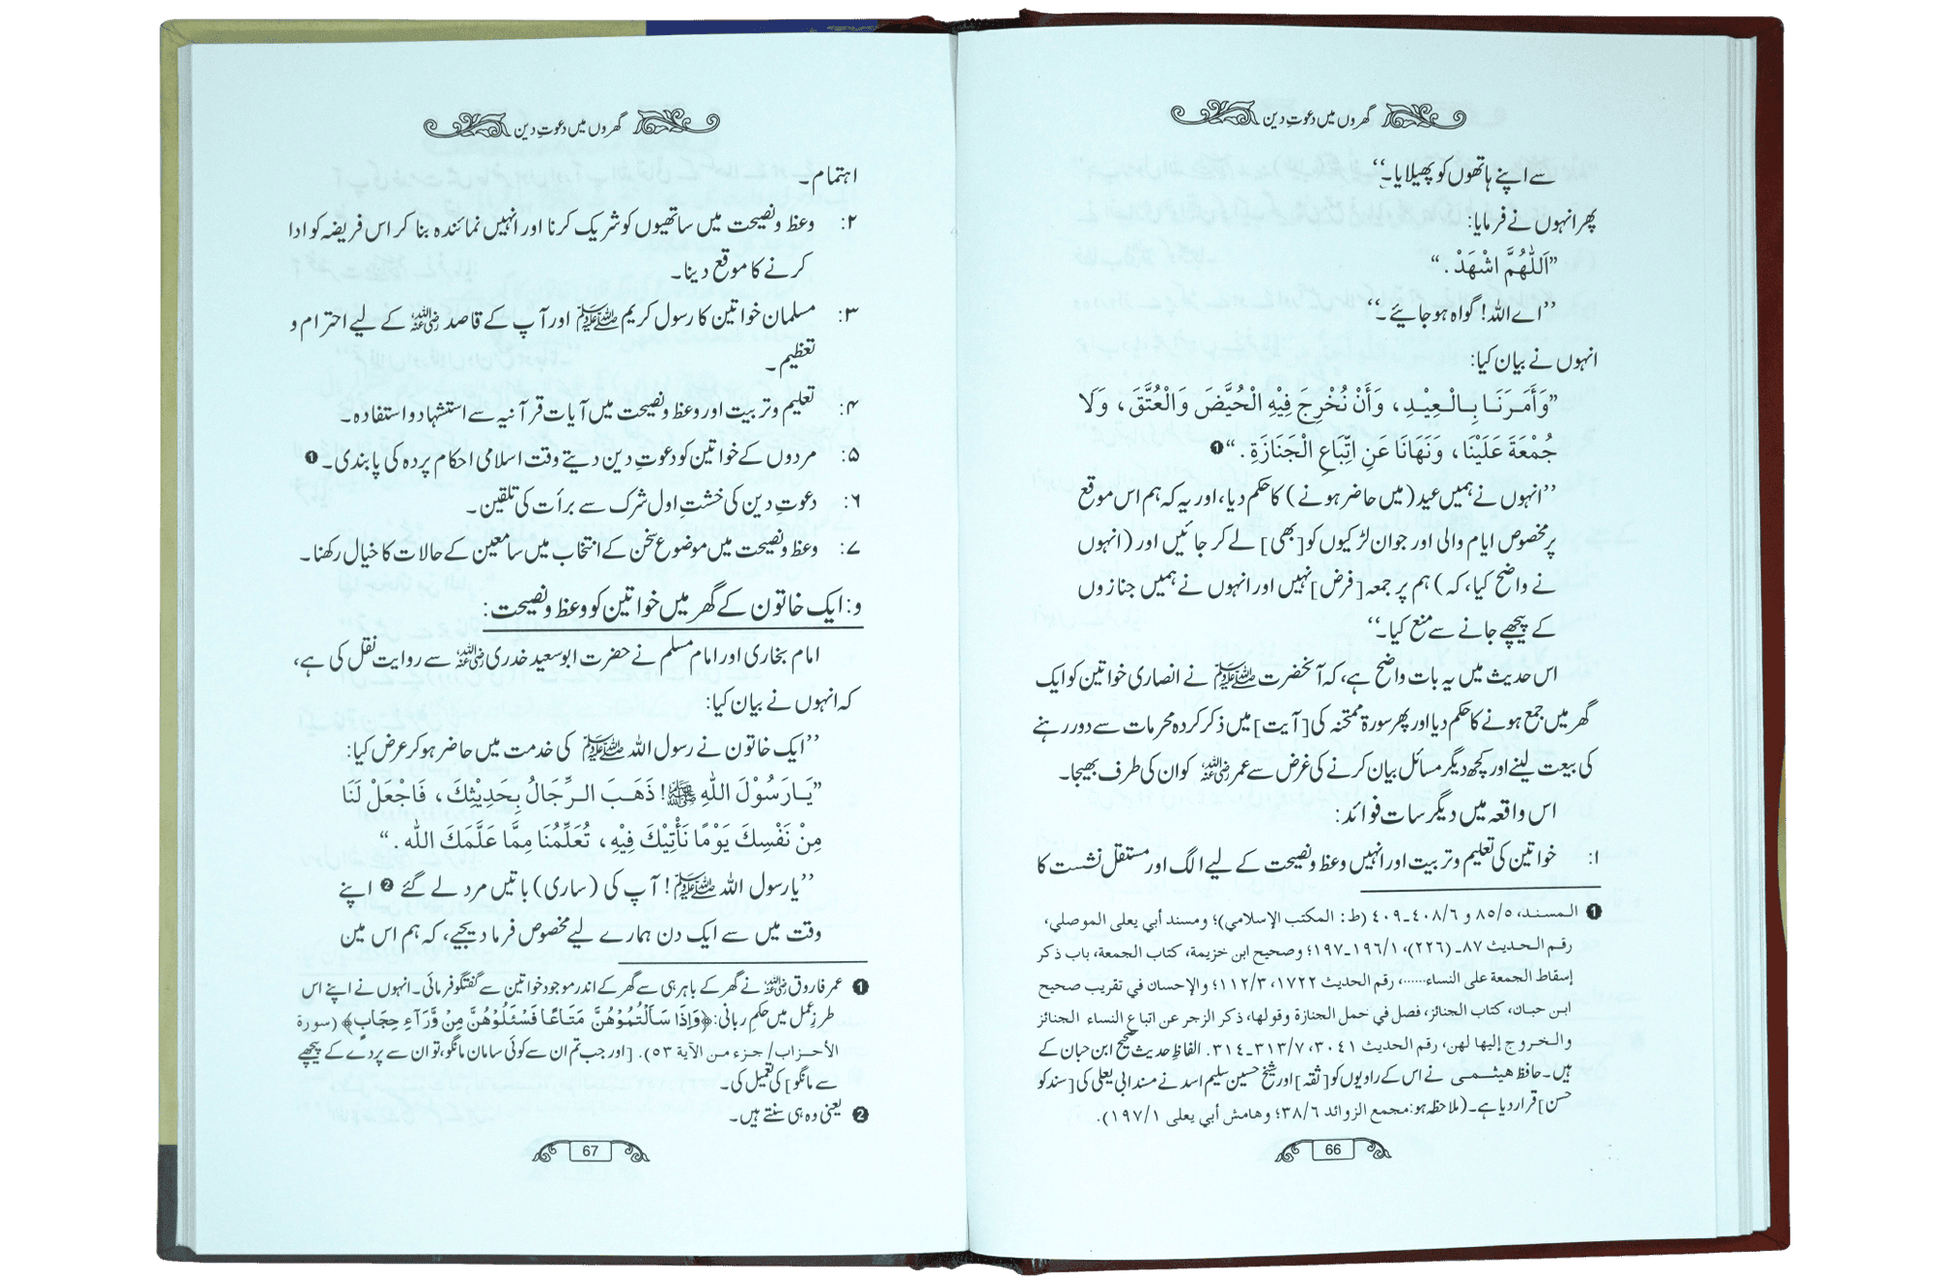 گھروں میں دعوتِ دین
سے اپنے ہاتھوں کو پھیلایا۔‘‘
پھر انہوں نے فرمایا:
”اَللّٰهُمَّ اشْهَدْ.“
’’اے اللہ! گواہ ہو جائیے۔‘‘
انہوں نے بیان کیا:
”وَأَمَرَنَا بِالْعِيْدِ، وَأَنْ نُخْرِجَ فِيْهِ الْحُيَّضَ وَالْعُتَّقَ، وَلَا
جُمْعَةَ عَلَيْنَا، وَنَهَانَا عَنِ اتِّبَاعِ الْجَنَازَةِ.“ ❶
’’انہوں نے ہمیں عید (میں حاضر ہونے) کا حکم دیا، اور یہ کہ ہم اس موقع
پر مخصوص ایام والی اور جوان لڑکیوں کو [بھی] لے کر جائیں اور (انہوں
نے واضح کیا، کہ) ہم پر جمعہ [فرض] نہیں اور انہوں نے ہمیں جنازوں
کے پیچھے جانے سے منع کیا۔‘‘
اس حدیث میں یہ بات واضح ہے، کہ آنحضرت ﷺ نے انصاری خواتین کو ایک
گھر میں جمع ہونے کا حکم دیا اور پھر سورۃ ممتحنہ کی [آیت] میں ذکر کردہ محرمات سے دور رہنے
کی بیعت لینے اور کچھ دیگر مسائل بیان کرنے کی غرض سے عمر رضی اللہ عنہ کو ان کی طرف بھیجا۔
اس واقعہ میں دیگر سات فوائد:
۱: خواتین کی تعلیم و تربیت اور انہیں وعظ و نصیحت کے لیے الگ اور مستقل نشست کا
❶ المسند، ٨٥/٥ و ٤٠٨/٦ـ٤٠٩ (ط: المكتب الإسلامي)؛ ومسند أبي يعلى الموصلي،
رقم الحديث ٨٧ـ (٢٢٦)، ١٩٦/١ـ١٩٧؛ وصحيح ابن خزيمة، كتاب الجمعة، باب ذكر
إسقاط الجمعة على النساء......، رقم الحديث ١٧٢٢، ١١٢/٣؛ والإحسان في تقريب صحيح
ابن حبان، كتاب الجنائز، فصل في حمل الجنازة وقولها، ذكر الزجر عن اتباع النساء الجنائز
والخروج إليها لهن، رقم الحديث ٣٠٤١، ٣١٣/٧ـ٣١٤. الفاظِ حدیث صحیح ابن حبان کے
ہیں۔ حافظ هيثمى نے اس کے راویوں کو [ثقہ] اور شیخ حسین سلیم اسد نے مسند ابی یعلی کی [سند کو
حسن] قرار دیا ہے۔ (ملاحظہ ہو: مجمع الزوائد ٣٨/٦؛ وهامش أبي يعلى ١٩٧/١).
66
گھروں میں دعوتِ دین
اہتمام۔
۲: وعظ و نصیحت میں ساتھیوں کو شریک کرنا اور انہیں نمائندہ بنا کر اس فریضہ کو ادا
کرنے کا موقع دینا۔
۳: مسلمان خواتین کا رسول کریم ﷺ اور آپ کے قاصد رضی اللہ عنہ کے لیے احترام و
تعظیم۔
۴: تعلیم و تربیت اور وعظ و نصیحت میں آیات قرآنیہ سے استشہاد و استفادہ۔
۵: مردوں کے خواتین کو دعوتِ دین دیتے وقت اسلامی احکام پردہ کی پابندی۔ ❶
۶: دعوتِ دین کی خشتِ اول شرک سے برأت کی تلقین۔
۷: وعظ و نصیحت میں موضوع سخن کے انتخاب میں سامعین کے حالات کا خیال رکھنا۔
و: ایک خاتون کے گھر میں خواتین کو وعظ و نصیحت:
امام بخاری اور امام مسلم نے حضرت ابو سعید خدری رضی اللہ عنہ سے روایت نقل کی ہے،
کہ انہوں نے بیان کیا:
’’ایک خاتون نے رسول اللہ ﷺ کی خدمت میں حاضر ہو کر عرض کیا:
”يَارَسُوْلَ اللّٰهِ ﷺ! ذَهَبَ الرِّجَالُ بِحَدِيْثِكَ، فَاجْعَلْ لَنَا
مِنْ نَفْسِكَ يَوْمًا نَأْتِيْكَ فِيْهِ، تُعَلِّمُنَا مِمَّا عَلَّمَكَ اللّٰه.“
’’یا رسول اللہ ﷺ! آپ کی (ساری) باتیں مرد لے گئے ❷ اپنے
وقت میں سے ایک دن ہمارے لیے مخصوص فرما دیجیے، کہ ہم اس میں
❶ عمر فاروق رضی اللہ عنہ نے گھر کے باہر ہی سے گھر کے اندر موجود خواتین سے گفتگو فرمائی۔ انہوں نے اپنے اس
طرزِ عمل میں حکمِ ربانی: ﴿وَإِذَا سَأَلْتُمُوْهُنَّ مَتَاعًا فَسْئَلُوْهُنَّ مِنْ وَّرَآءِ حِجَابٍ﴾ (سورة
الأحزاب/ جزء من الآية ٥٣). [اور جب تم ان سے کوئی سامان مانگو، تو ان سے پردے کے پیچھے
سے مانگو] کی تعمیل کی۔
❷ یعنی وہ ہی سنتے ہیں۔
67